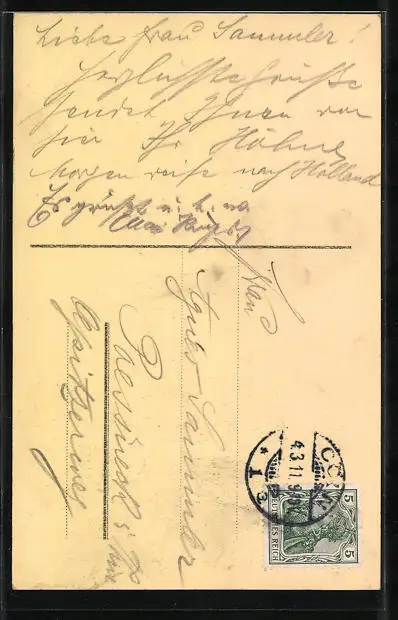 Liebe Frau Sammler!
Herzlichste Grüße
sendet Ihnen von
hier Ihr Höhne
Morgen reise nach Holland
Es grüßt
Frau
Agnes Sammler
Poessneck i/Thür
CÖLN
4.3.11.9-10
* 1 e
5
5
DEUTSCHES REICH